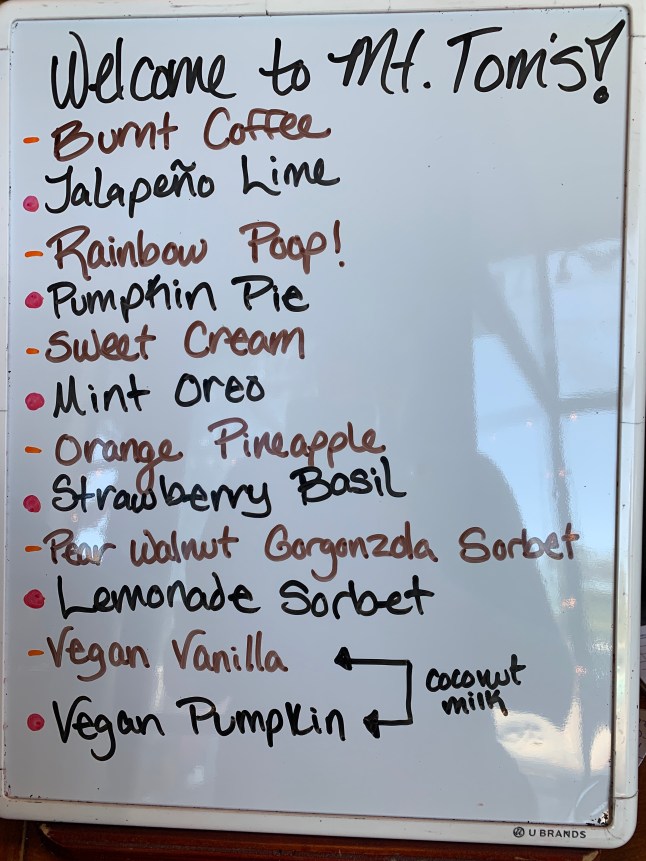 Welcome to Mt. Tom's!
- Burnt Coffee
• Jalapeño Lime
- Rainbow Poop!
• Pumpkin Pie
- Sweet Cream
• Mint Oreo
- Orange Pineapple
• Strawberry Basil
- Pear Walnut Gorgonzola Sorbet
• Lemonade Sorbet
- Vegan Vanilla
coconut
milk
• Vegan Pumpkin
U BRANDS